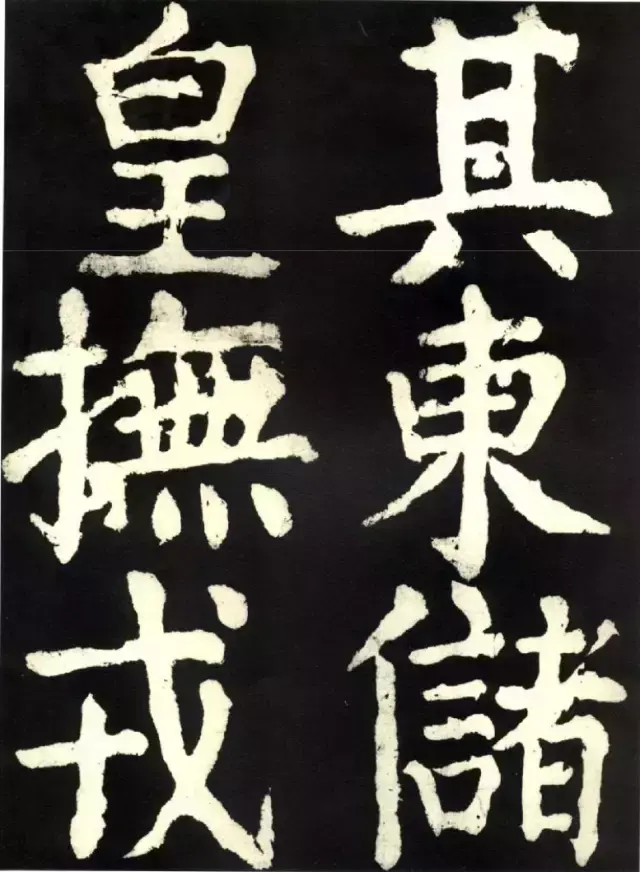 其東儲
皇撫戎